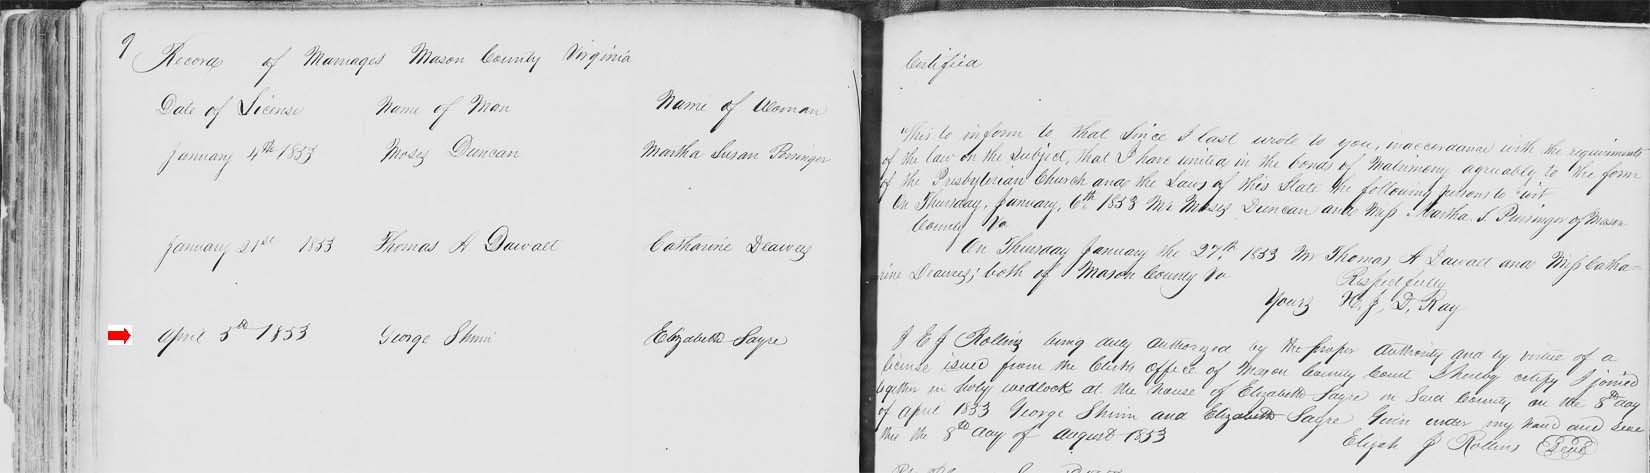 9 Record of Marriages Mason County Virginia
Date of License Name of Man Name of Woman
January 4th 1853 Moses Duncan Martha Susan
January 21st 1853 Thomas A Dawall Catharine Deaver
April 5th 1853 George Shinn Elizabeth Sayre
Certified
This to inform to that Since I last wrote to you, in accordance with the requirements
of the law on the Subject, that I have united in the bonds of Matrimony agreeably to the form
of the Presbyterian Church and the Laws of this State the following persons to wit
On Thursday, January, 6th 1853 Mr Moses Duncan and Miss Martha S. of Mason
County Va
On Thursday January the 27th 1853 Mr Thomas A Dawall and Miss Catha-
rine both of Mason County Va
Respectfully
Yours H. J. D. Ray
I E J Rollins being duly authorized by the proper authority and by virtue of a
license issued from the Clerks Office of Mason County Court I hereby certify I joined
together in holy wedlock at the house of Elizabeth Sayre in Said County on the 8th day
of April 1853 George Shinn and Elizabeth Sayre Given under my hand and seal
this the 8th day of August 1853
Elijah J Rollins Seal